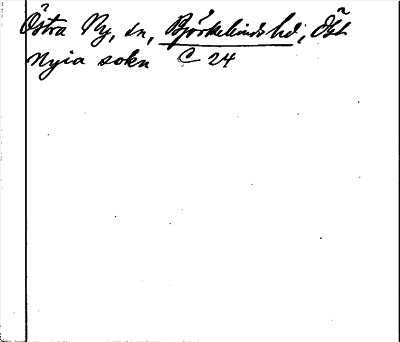 Östra Ny, sn, Björkekinds hd, Öst
Nyia sokn C 24